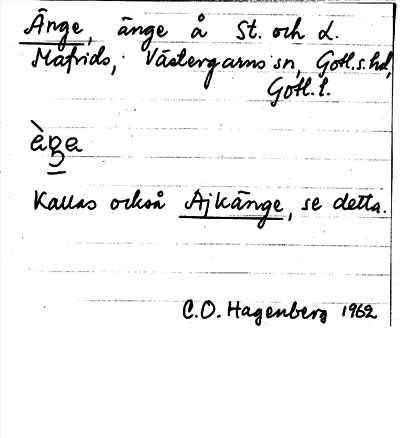 Änge, änge å St. och L.
Mafrids, Västergarns sn, Gotl.s.hd,
Gotl.l.
Kallas också Ajkänge, se detta.
C.O. Hagenberg 1962